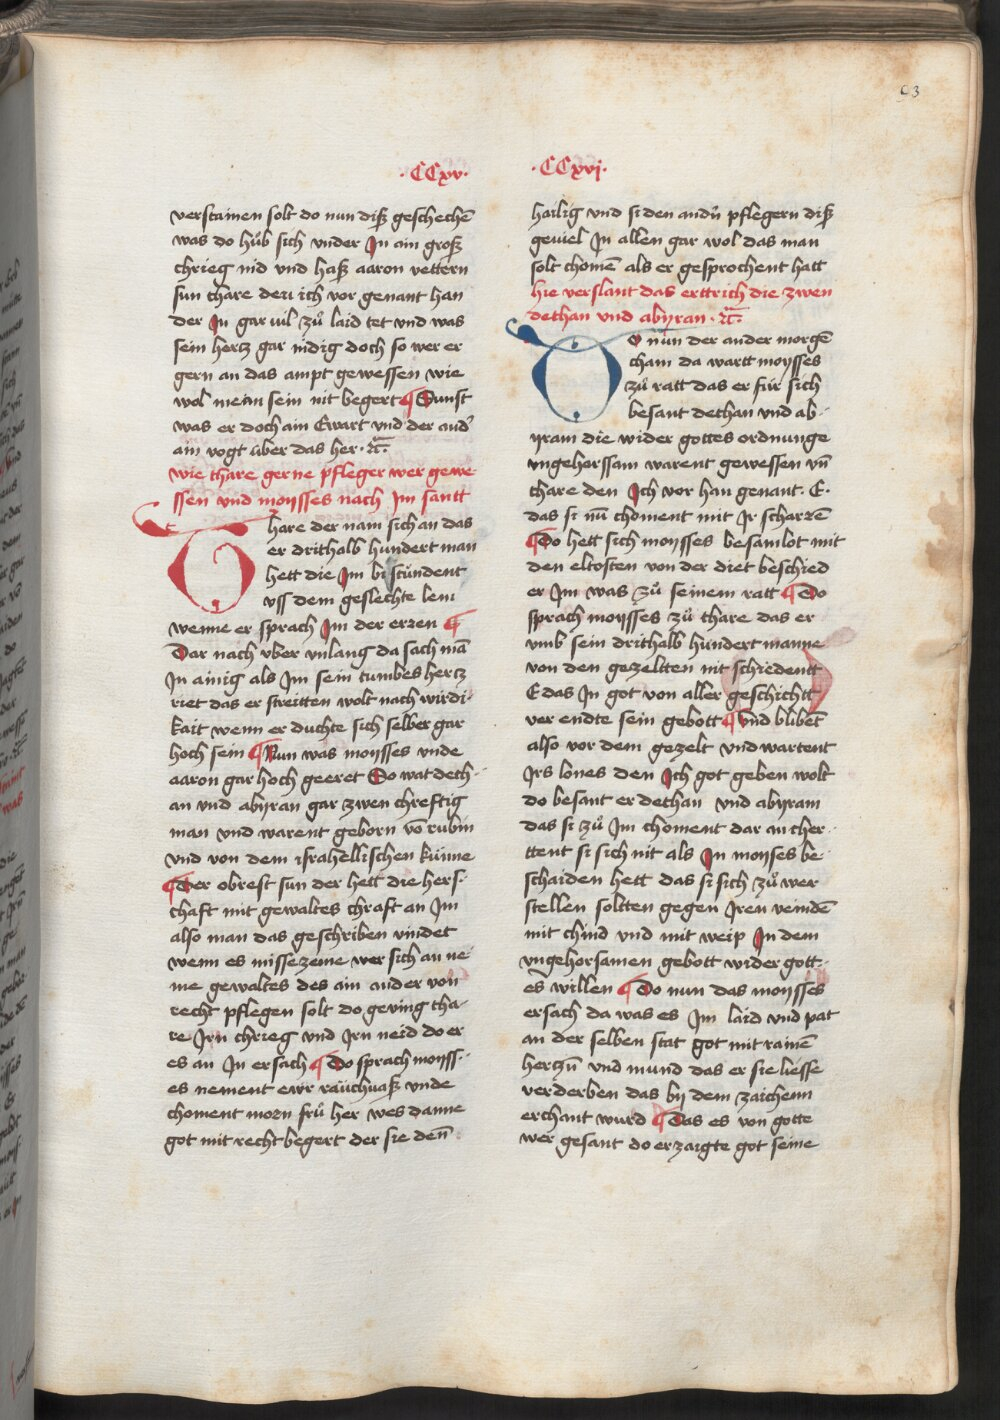 93
·CCxv·
verstainen solt do nun diß geschechē
was do hůb sich vnder Jn ain groß
chrieg nid vnd haß aaron vettern
sun thare den ich vor genant han
der Jn gar vil zů laid tet vnd was
sein hertz gar nidig doch so wer er
gern an das ampt gewessen wie
wol mein sein nit begert ¶ Sunst
was er doch ain Ewart vnd der and᾿
ain vogt über das her · ꝛc̄
wie thare gerne pfleger wer gewe
ssen vnd moysses nach Jm santt
Thare der nam sich an das
er drithalb hundert man
hett die Jm bi stůndent
vss dem geslechte leui
wenne er sprach Jm der erzen ¶
Dar nach vber vnlang da sach mā
Jn ainig als Jm sein tumbes hertz
riet das er streitten wolt nach wirdi·
kait wenn er duchte sich selber gar
hoch sein ¶ Nun was moysses vnde
aaron gar hoch geeret Do wat dech·
an vnd abyran gar zwen chreftig
man vnd warent geborn vō rubin
vnd von dem ifrahellischen künne
¶ Der obrest sun der hett die hers·
chaft mit gewaltes chraft an Jm
also man das geschriben vindet
wenn es missezeme wer sich an ne
me gewaltes des ain ander von
recht pflegen solt do geving tha·
re Jrn chrieg vnd Jrn neid do er
es an Jn ersach ¶ Do sprach moyss·
es nement ewr räuchuaß vnde
choment morn frů her wes danne
got mit recht begert der sie denn
·CCxvj·
hailig vnd si den andn̄ pflegern diß
geuiel Jn allen gar wol das man
solt chomē als er gesprochent hatt
hie verslant das erttrich die zwen
dethan vnd abyran · ꝛc̄
DO nun der ander morgē
cham da wartt moysses
zů ratt das er für sich
besant dethan vnd ab·
yram die wider gottes ordnunge
vngehorssam warent gewessen vn̄
thare den Jch vor han genant · E·
das si nū choment mit Jr scharzē
¶ Do hett sich moysses besamlot mit
den eltosten von der diet beschied
er Jm was zů seinem ratt ¶ Do
sprach moysses zů thare das er
vmb sein drithalb hundert manne
von den gezeltten nit schiedentt
E das Jn got von aller geschichtt
ver endte sein gebott ¶ vnd blibēt
also vor dem gezelt vnd wartent
Jrs lones den Jch got geben wolt
do besant er dethan vnd abyram
das si zů Jm choment dar an cher·
ttent si sich nit als Jn moyses be·
schaiden hett das si sich zů wer
stellen soltten gegen Jren veindē
mit chind vnd mit weip Jn dem
vngehorsamen gebott wider gott·
es willen ¶ Do nun das moysses
ersach da was es Jm laid vnd pat
an der selben stat got mit rainē
hertzn̄ vnd mund das er sie liesse
verderben das bij dem zaichenn
erchant wurd ¶ Das es von gotte
wer gesant do erzaigte got seine